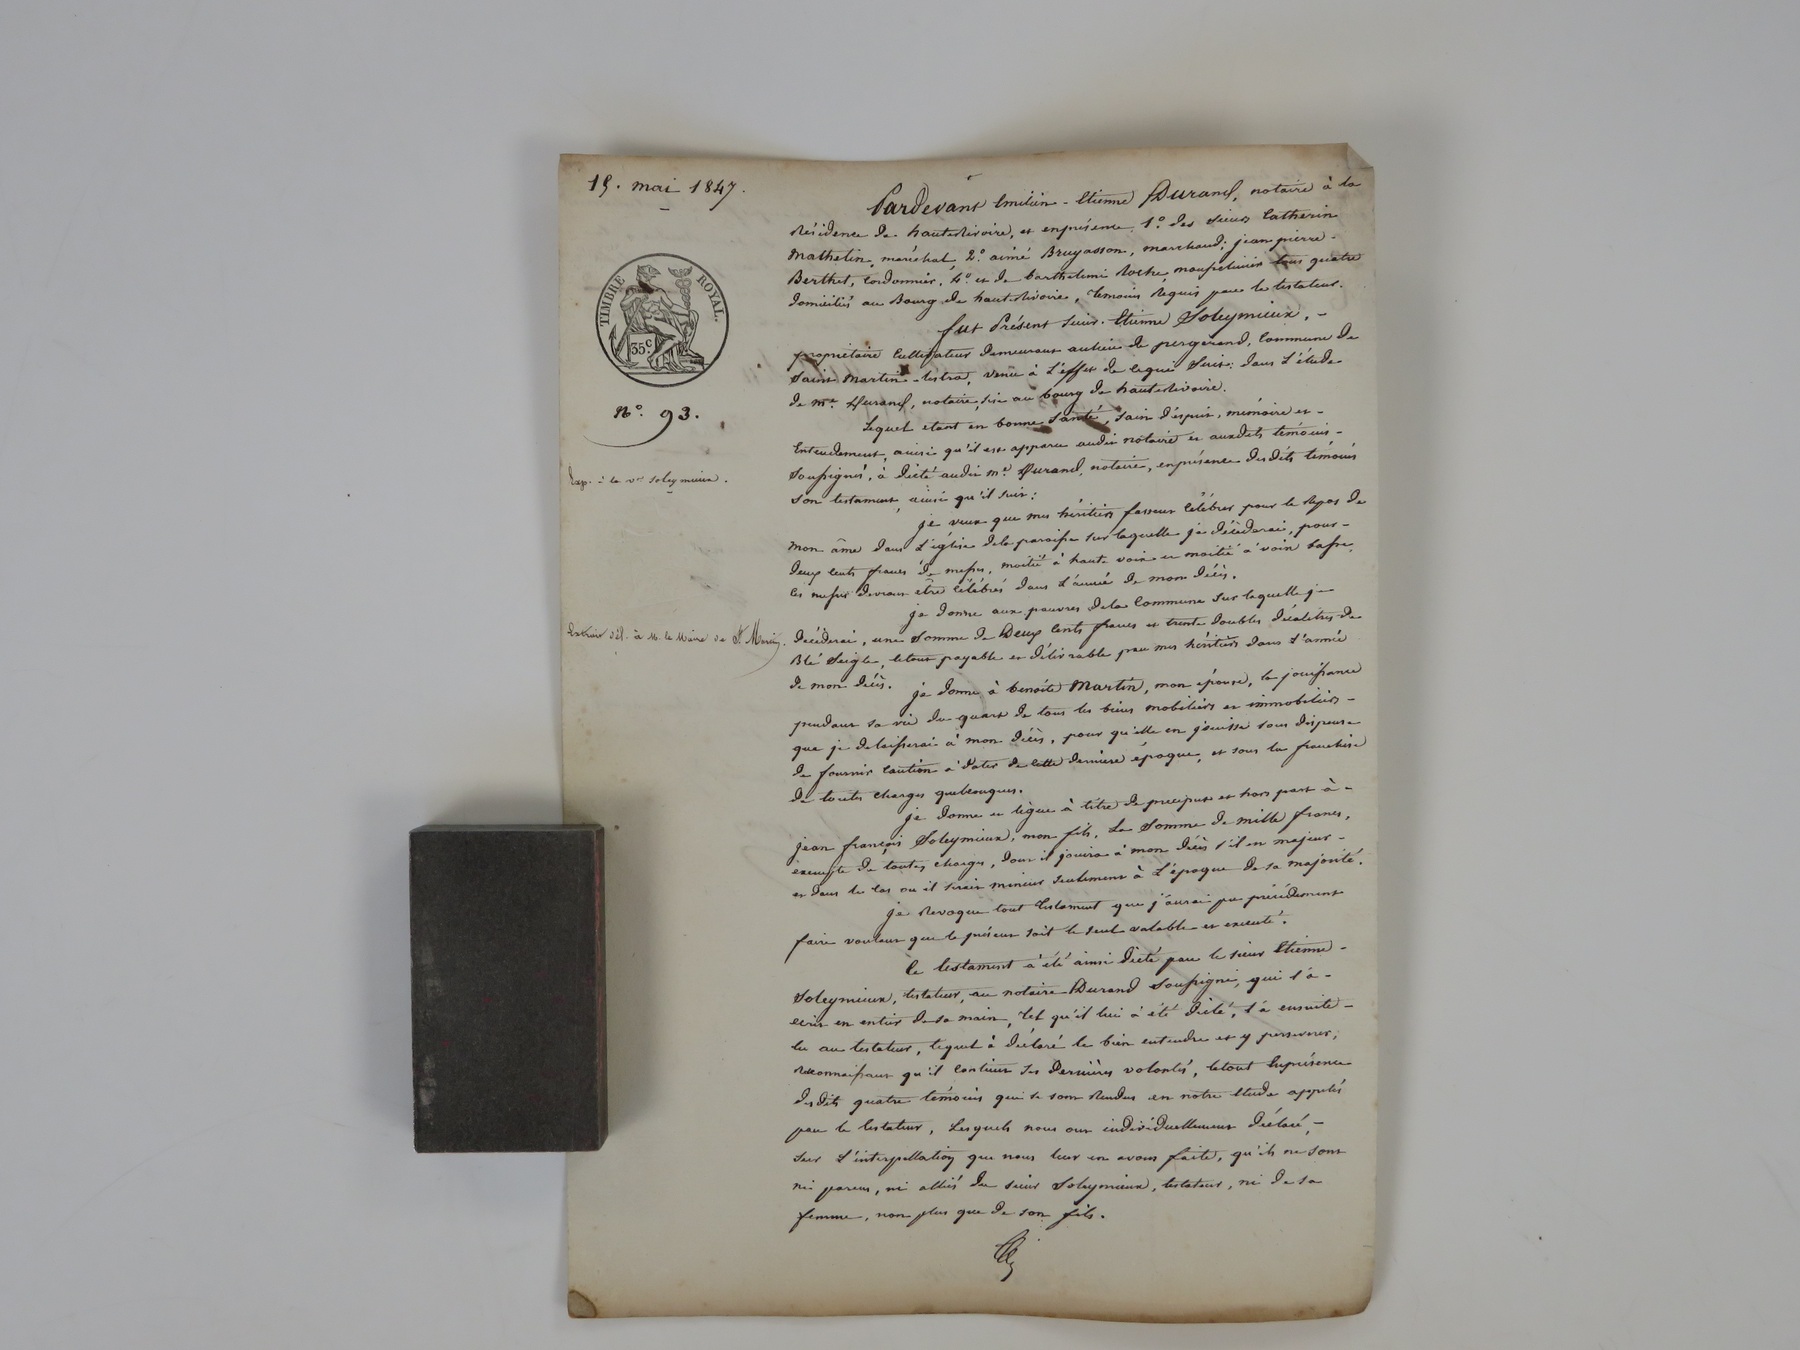 15. mai 1847.
TIMBRE ROYAL.
35 c
N.º 93.
Exp. à la v.ve Soleymieux.
Extrait dél. à M. le Maire de St Martin.
Pardevant Emilien-Etienne Durand, notaire à la
résidence de hauterivoire, et en présence 1.º des sieurs Catherin
Mathelin, maréchal, 2.º aimé Bruyasson, marchand; jean pierre
Berthet, cordonnier, 4.º et de barthelemi Roche, tous quatre
domiciliés au Bourg de hauterivoire, témoins requis par le testateur.
fut Présent sieur Etienne Soleymieux,
propriétaire cultivateur demeurant au lieu de pergerand, Commune de
Saint Martin-lestra, venu à l'effet de ce qui suit: dans l'étude
de m.e Durand, notaire, sise au bourg de hauterivoire.
Lequel etant en bonne santé, sain d'esprit, mémoire et
Entendement, ainsi qu'il est apparu audit notaire et auxdits témoins
soussignés, à dicté audit m.e Durand, notaire, en présence desdits témoins
son testament, ainsi qu'il suit:
je veux que mes héritiers fassent célébrer pour le repos de
mon âme dans l'église de la paroisse sur laquelle je décéderai, pour
deux cents francs de messes, moitié à haute voix et moitié à voix basse,
les messes devront être célébrés dans l'année de mon décès.
je donne aux pauvres de la Commune sur laquelle je
decéderai, une somme de Deux cents francs et trente doubles décalitres de
Blé seigle, le tout payable et délivrable par mes héritiers dans l'année
de mon décès.
je donne à benoite Martin, mon épouse, la jouissance
pendant sa vie du quart de tous les biens mobiliers et immobiliers
que je delaisserai à mon décès, pour qu'elle en jouisse sans dispense
de fournir caution à dater de cette dernière époque, et sous la franchise
de toutes charges quelconques.
je donne et lègue à titre de preciput et hors part à
jean françois Soleymieux, mon fils, la somme de mille francs,
exempte de toutes charges, dont il jouira à mon décès s'il est majeur
et dans le cas ou il serait mineur seulement à l'époque de sa majorité.
je Revoque tout testament que j'aurai pu précédement
faire voulant que le présent soit le seul valable et executé.
Ce testament a été ainsi dicté par le sieur Etienne
Soleymieux, testateur, au notaire Durand soussigné, qui l'a
écrit en entier de sa main, tel qu'il lui à été dicté, l'a ensuite
lu au testateur, lequel à déclaré le bien entendre et y perseverer,
reconnaissant qu'il contient ses dernières volontés, le tout En présence
desdits quatre témoins qui se sont rendus en notre étude appelés
par le testateur, lesquels nous ont individuellement déclaré,
sur l'interpellation que nous leur en avons faite, qu'ils ne sont
ni parens, ni alliés du sieur Soleymieux, testateur, ni de sa
femme, non plus que de son fils.